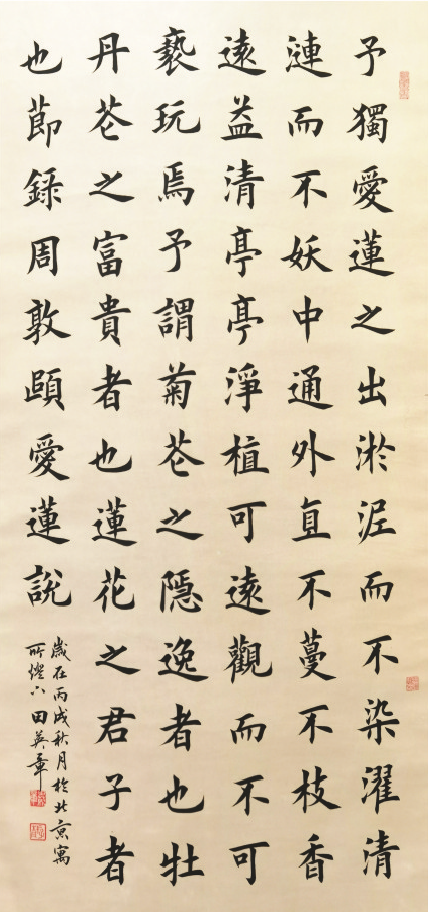 予獨愛蓮之出淤泥而不染濯清
漣而不妖中通外直不蔓不枝香
遠益清亭亭淨植可遠觀而不可
褻玩焉予謂菊花之隱逸者也牡
丹花之富貴者也蓮花之君子者
也節錄周敦頤愛蓮說
歲在丙戌秋月於北京寓
所燈下田英章